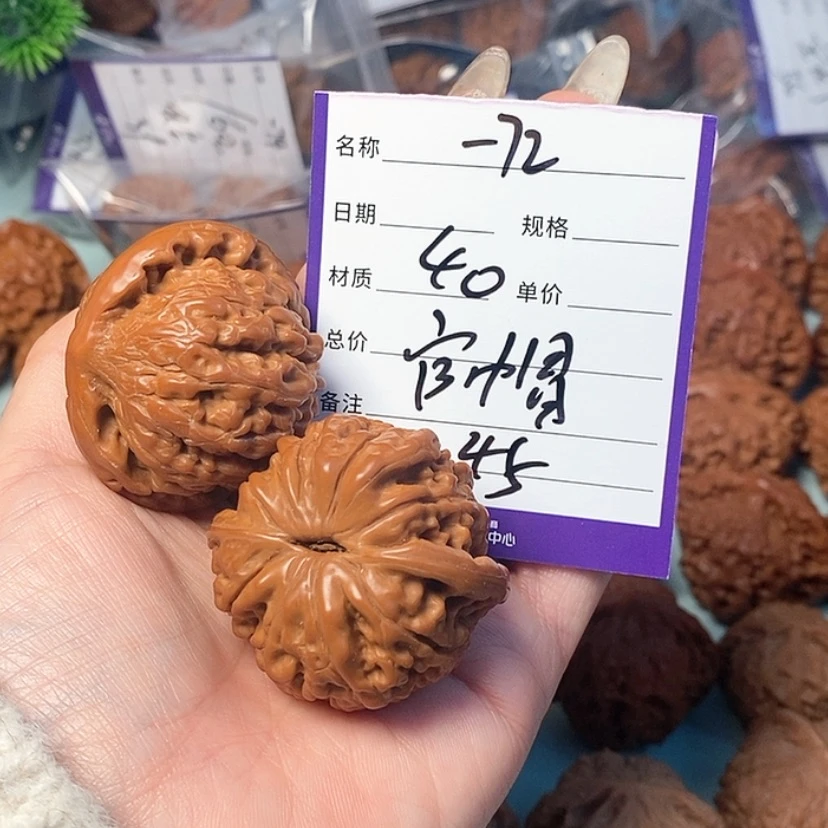 名称 -72
日期 规格
材质 40 单价
总价 官帽
备注
45
中心